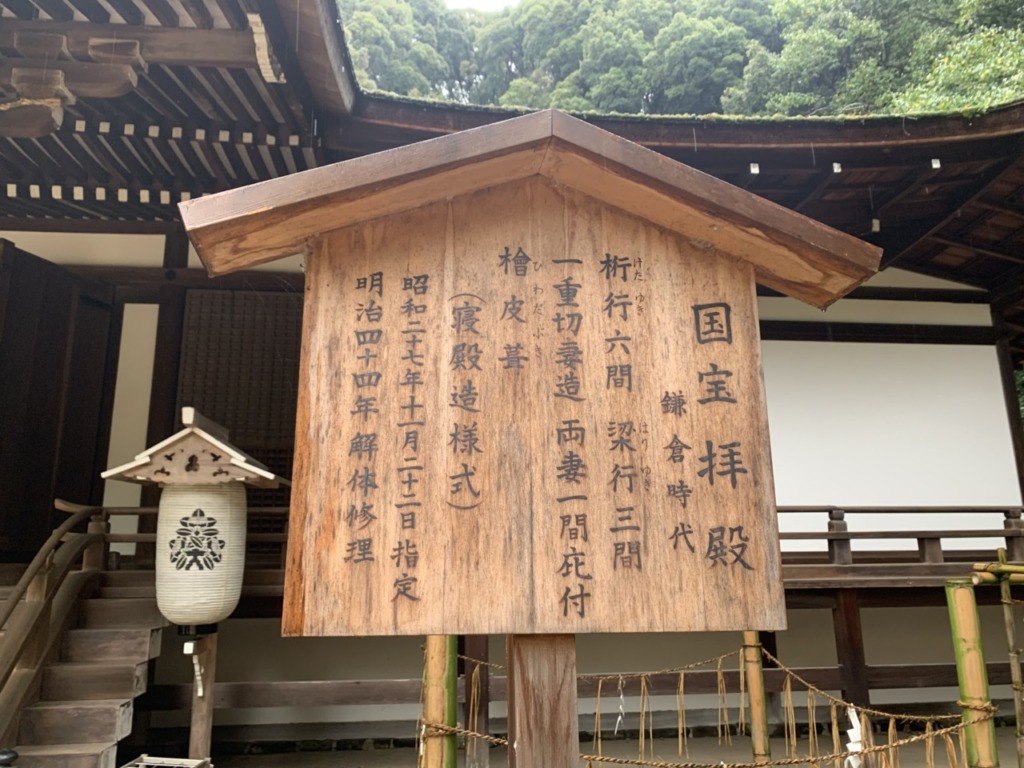 国宝 拝殿
鎌倉時代
桁行六間 梁行三間
けたゆき はりゆき
一重切妻造 両妻一間庇付
檜皮葺
ひわだぶき
(寝殿造様式)
昭和二十七年十一月二十二日 指定
明治四十四年 解体修理